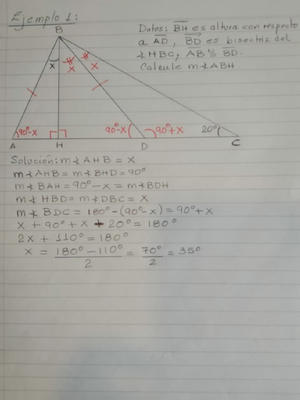 Ejemplo 1:
Datos: BH es altura con respecto
a AD, BD es bisectriz del
∡HBC, AB ≅ BD.
Calcule m∡ABH
B
x
x
x
90°-x
90°-x
90°+x
20°
A
H
D
C
Solución: m∡AHB = x
m∡AHB = m∡BHD = 90°
m∡BAH = 90° - x = m∡BDH
m∡HBD = m∡DBC = x
m∡BDC = 180° - (90° - x) = 90° + x
x + 90° + x + 20° = 180°
2x + 110° = 180°
x = 180° - 110° / 2 = 70° / 2 = 35°